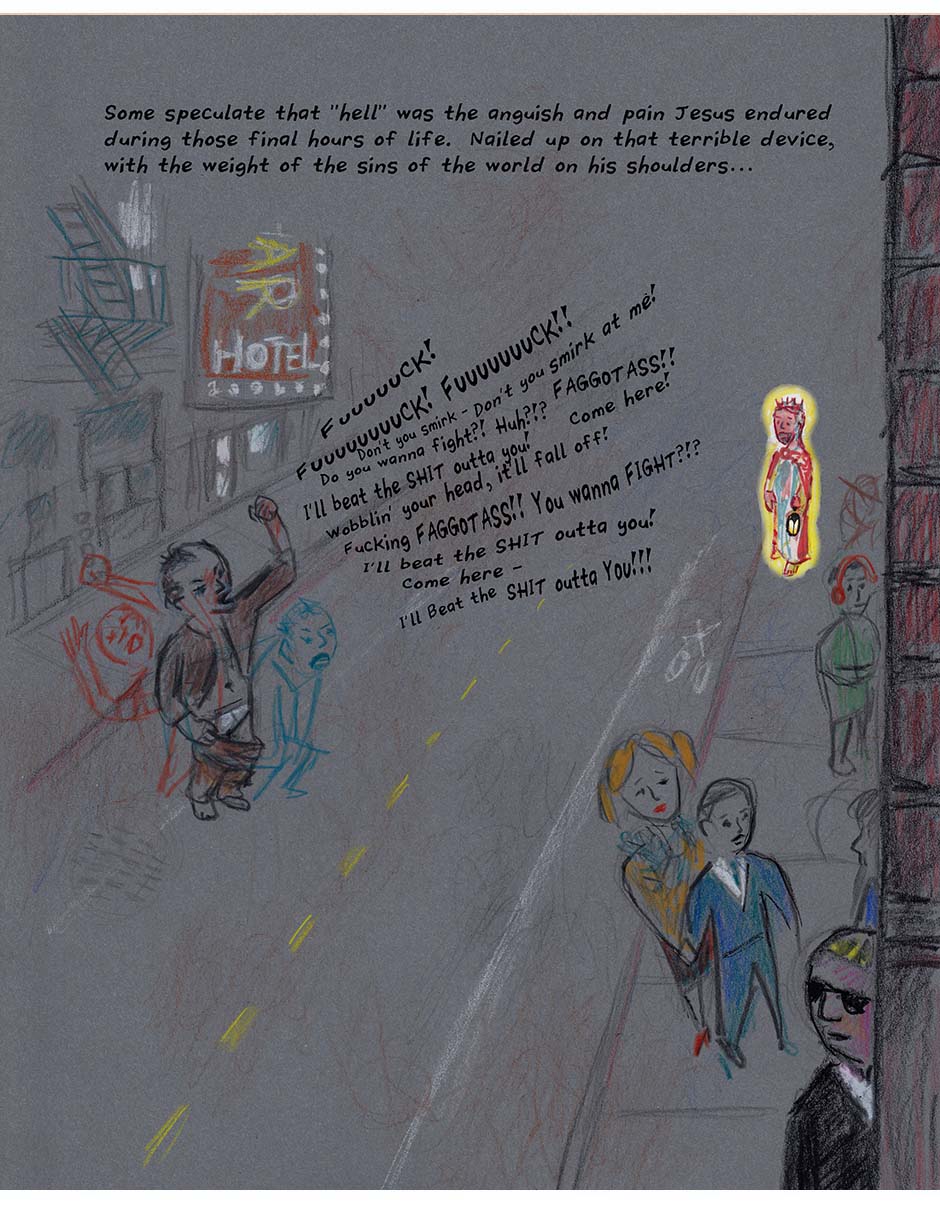 Some speculate that "hell" was the anguish and pain Jesus endured
during those final hours of life. Nailed up on that terrible device,
with the weight of the sins of the world on his shoulders...
HOTEL
FUUUUUUCK!
FUUUUUUUUCK! FUUUUUUUCK!!
Don't you smirk - Don't you smirk at me!
Do you wanna fight?! Huh?!? FAGGOTASS!!
I'll beat the SHIT outta you! Come here!
Wobblin' your head, it'll fall off!
Fucking FAGGOTASS!! You wanna FIGHT?!?
I'll beat the SHIT outta you!
Come here -
I'll Beat the SHIT outta You!!!